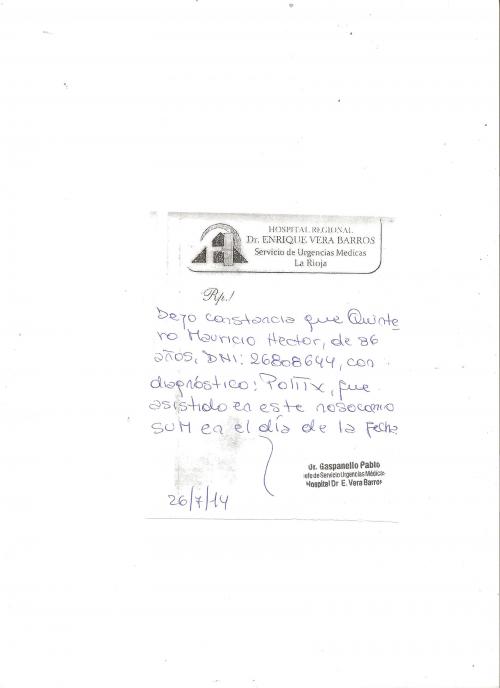 HOSPITAL REGIONAL
Dr. ENRIQUE VERA BARROS
Servicio de Urgencias Medicas
La Rioja
Rp.!
Dejo constancia que Quinte
ro Mauricio Hector, de 36
años, DNI: 26808644, con
diagnóstico: PoliTx, fue
asistido en este nosocomio
SUM en el día de la fecha
Dr. Gaspanello Pablo
Jefe de Servicio Urgencias Médicas
Hospital Dr. E. Vera Barros
26/7/14